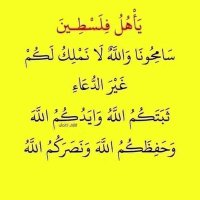 يَأْهُلُ فِلَسْطِـينَ
سَامِحُونَا وَاللَّهِ لَا نَمْلِكُ لَكُمْ
غَيْرَ الدُّعَاءِ
ثَبَتَكُمُ اللَّهُ وَايَدَكُمُ اللَّهَ
وَحَفِظَكُمُ اللَّهَ وَنَصَرَكُمُ اللَّهُ